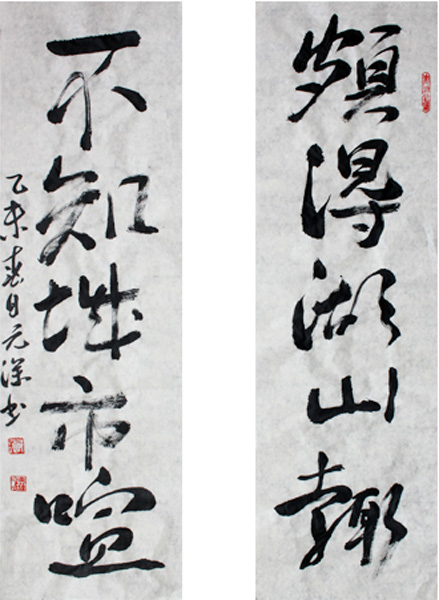 頻得湖山趣
不知城市喧
乙未春日元深书